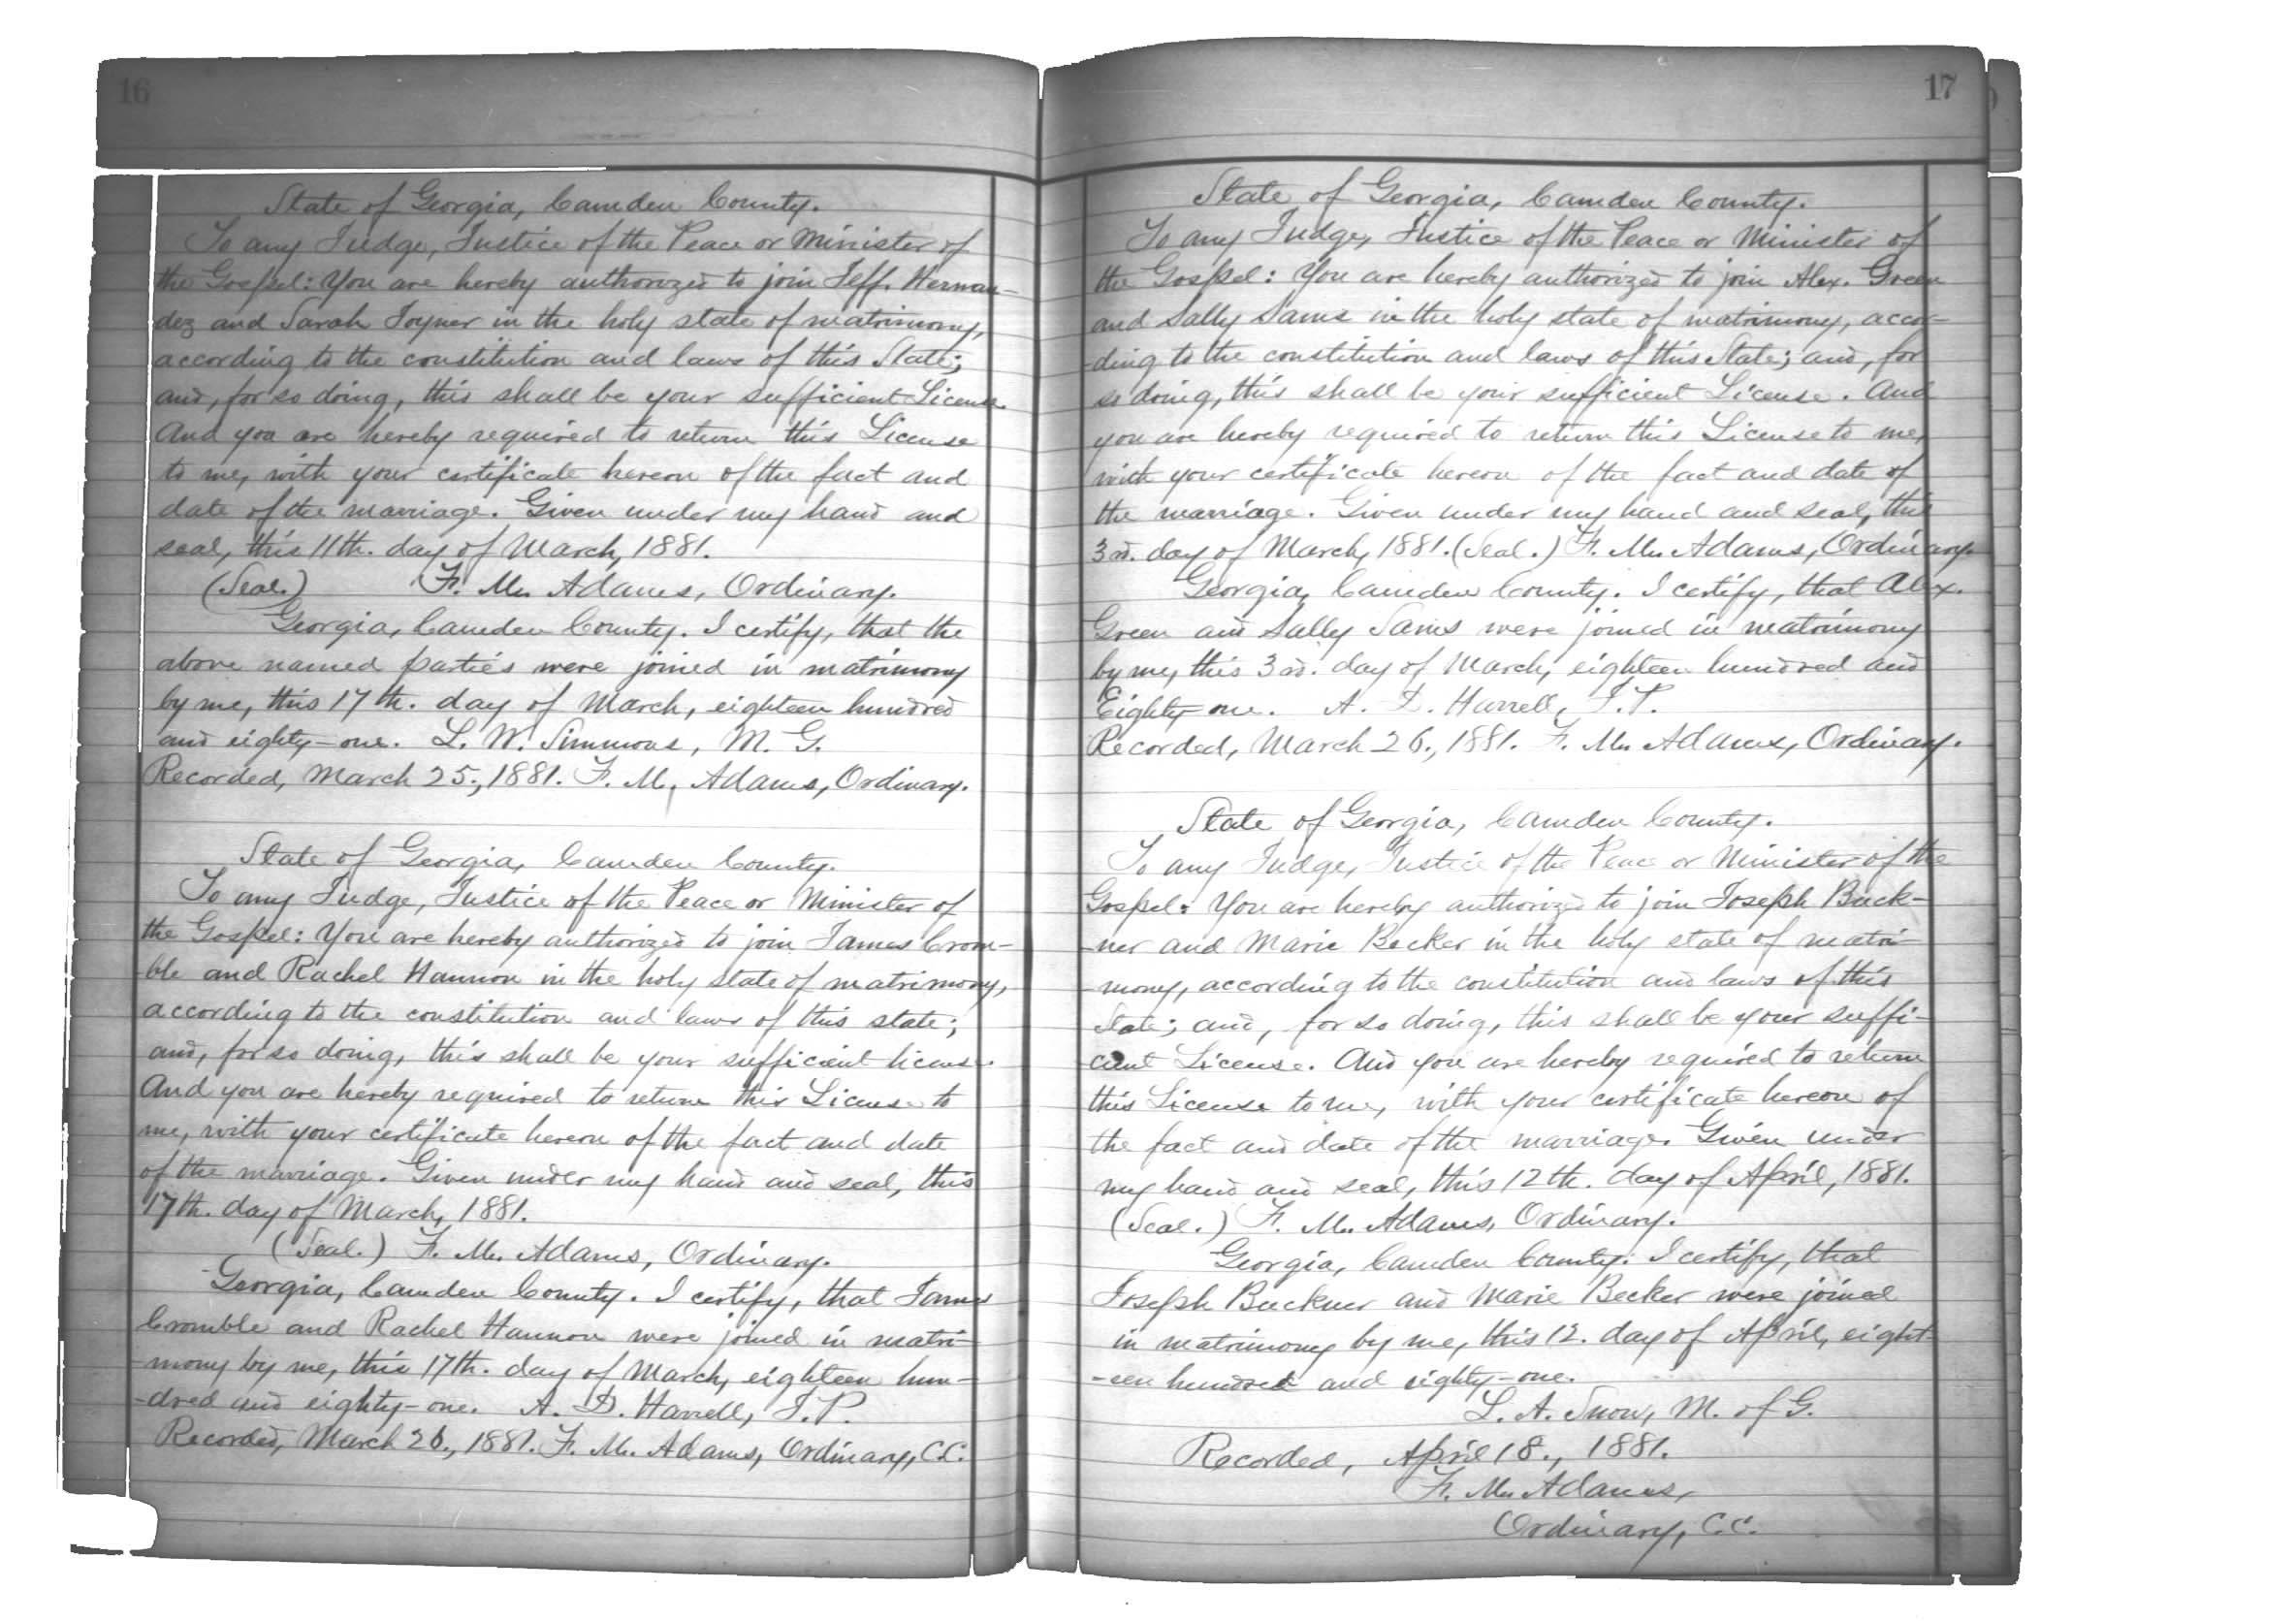 16
State of Georgia, Camden County.
To any Judge, Justice of the Peace or Minister of
the Gospel: You are hereby authorized to join Jeff. Hernan-
dez and Sarah Joyner in the holy state of matrimony,
according to the constitution and laws of this State;
and, for so doing, this shall be your sufficient License.
And you are hereby required to return this License
to me, with your certificate hereon of the fact and
date of the marriage. Given under my hand and
seal, this 11th. day of March, 1881.
(Seal.) F. M. Adams, Ordinary.
Georgia, Camden County. I certify, that the
above named parties were joined in matrimony
by me, this 17th. day of March, eighteen hundred
and eighty-one. L. W. Simmons, M. G.
Recorded, March 25., 1881. F. M. Adams, Ordinary.
State of Georgia, Camden County.
To any Judge, Justice of the Peace or Minister of
the Gospel: You are hereby authorized to join James Crom-
ble and Rachel Hannon in the holy state of matrimony,
according to the constitution and laws of this state;
and, for so doing, this shall be your sufficient license.
And you are hereby required to return this License to
me, with your certificate hereon of the fact and date
of the marriage. Given under my hand and seal, this
17th. day of March, 1881.
(Seal.) F. M. Adams, Ordinary.
Georgia, Camden County. I certify, that James
Cromble and Rachel Hannon were joined in matri-
-mony by me, this 17th. day of March, eighteen hun-
-dred and eighty-one. A. D. Harrell, J. P.
Recorded, March 26., 1881. F. M. Adams, Ordinary, C.C.
17
State of Georgia, Camden County.
To any Judge, Justice of the Peace or Minister of
the Gospel: You are hereby authorized to join Alex. Green
and Sally Sams in the holy state of matrimony, accor-
-ding to the constitution and laws of this State; and, for
so doing, this shall be your sufficient License. And
you are hereby required to return this License to me,
with your certificate hereon of the fact and date of
the marriage. Given under my hand and seal, this
3rd. day of March, 1881. (Seal.) F. M. Adams, Ordinary.
Georgia, Camden County. I certify, that Alex.
Green and Sally Sams were joined in matrimony
by me, this 3rd. day of March, eighteen hundred and
Eighty-one. A. D. Harrell, J. P.
Recorded, March 26., 1881. F. M. Adams, Ordinary.
State of Georgia, Camden County.
To any Judge, Justice of the Peace or Minister of the
Gospel: You are hereby authorized to join Joseph Buck-
-ner and Marie Becker in the holy state of matri-
-mony, according to the constitution and laws of this
State; and, for so doing, this shall be your suffi-
cient License. And you are hereby required to return
this License to me, with your certificate hereon of
the fact and date of the marriage. Given under
my hand and seal, this 12th. day of April, 1881.
(Seal.) F. M. Adams, Ordinary.
Georgia, Camden County. I certify, that
Joseph Buckner and Marie Becker were joined
in matrimony by me, this 12. day of April, eight-
-een hundred and eighty-one.
L. A. Snow, M. of G.
Recorded, April 18., 1881.
F. M. Adams,
Ordinary, C.C.